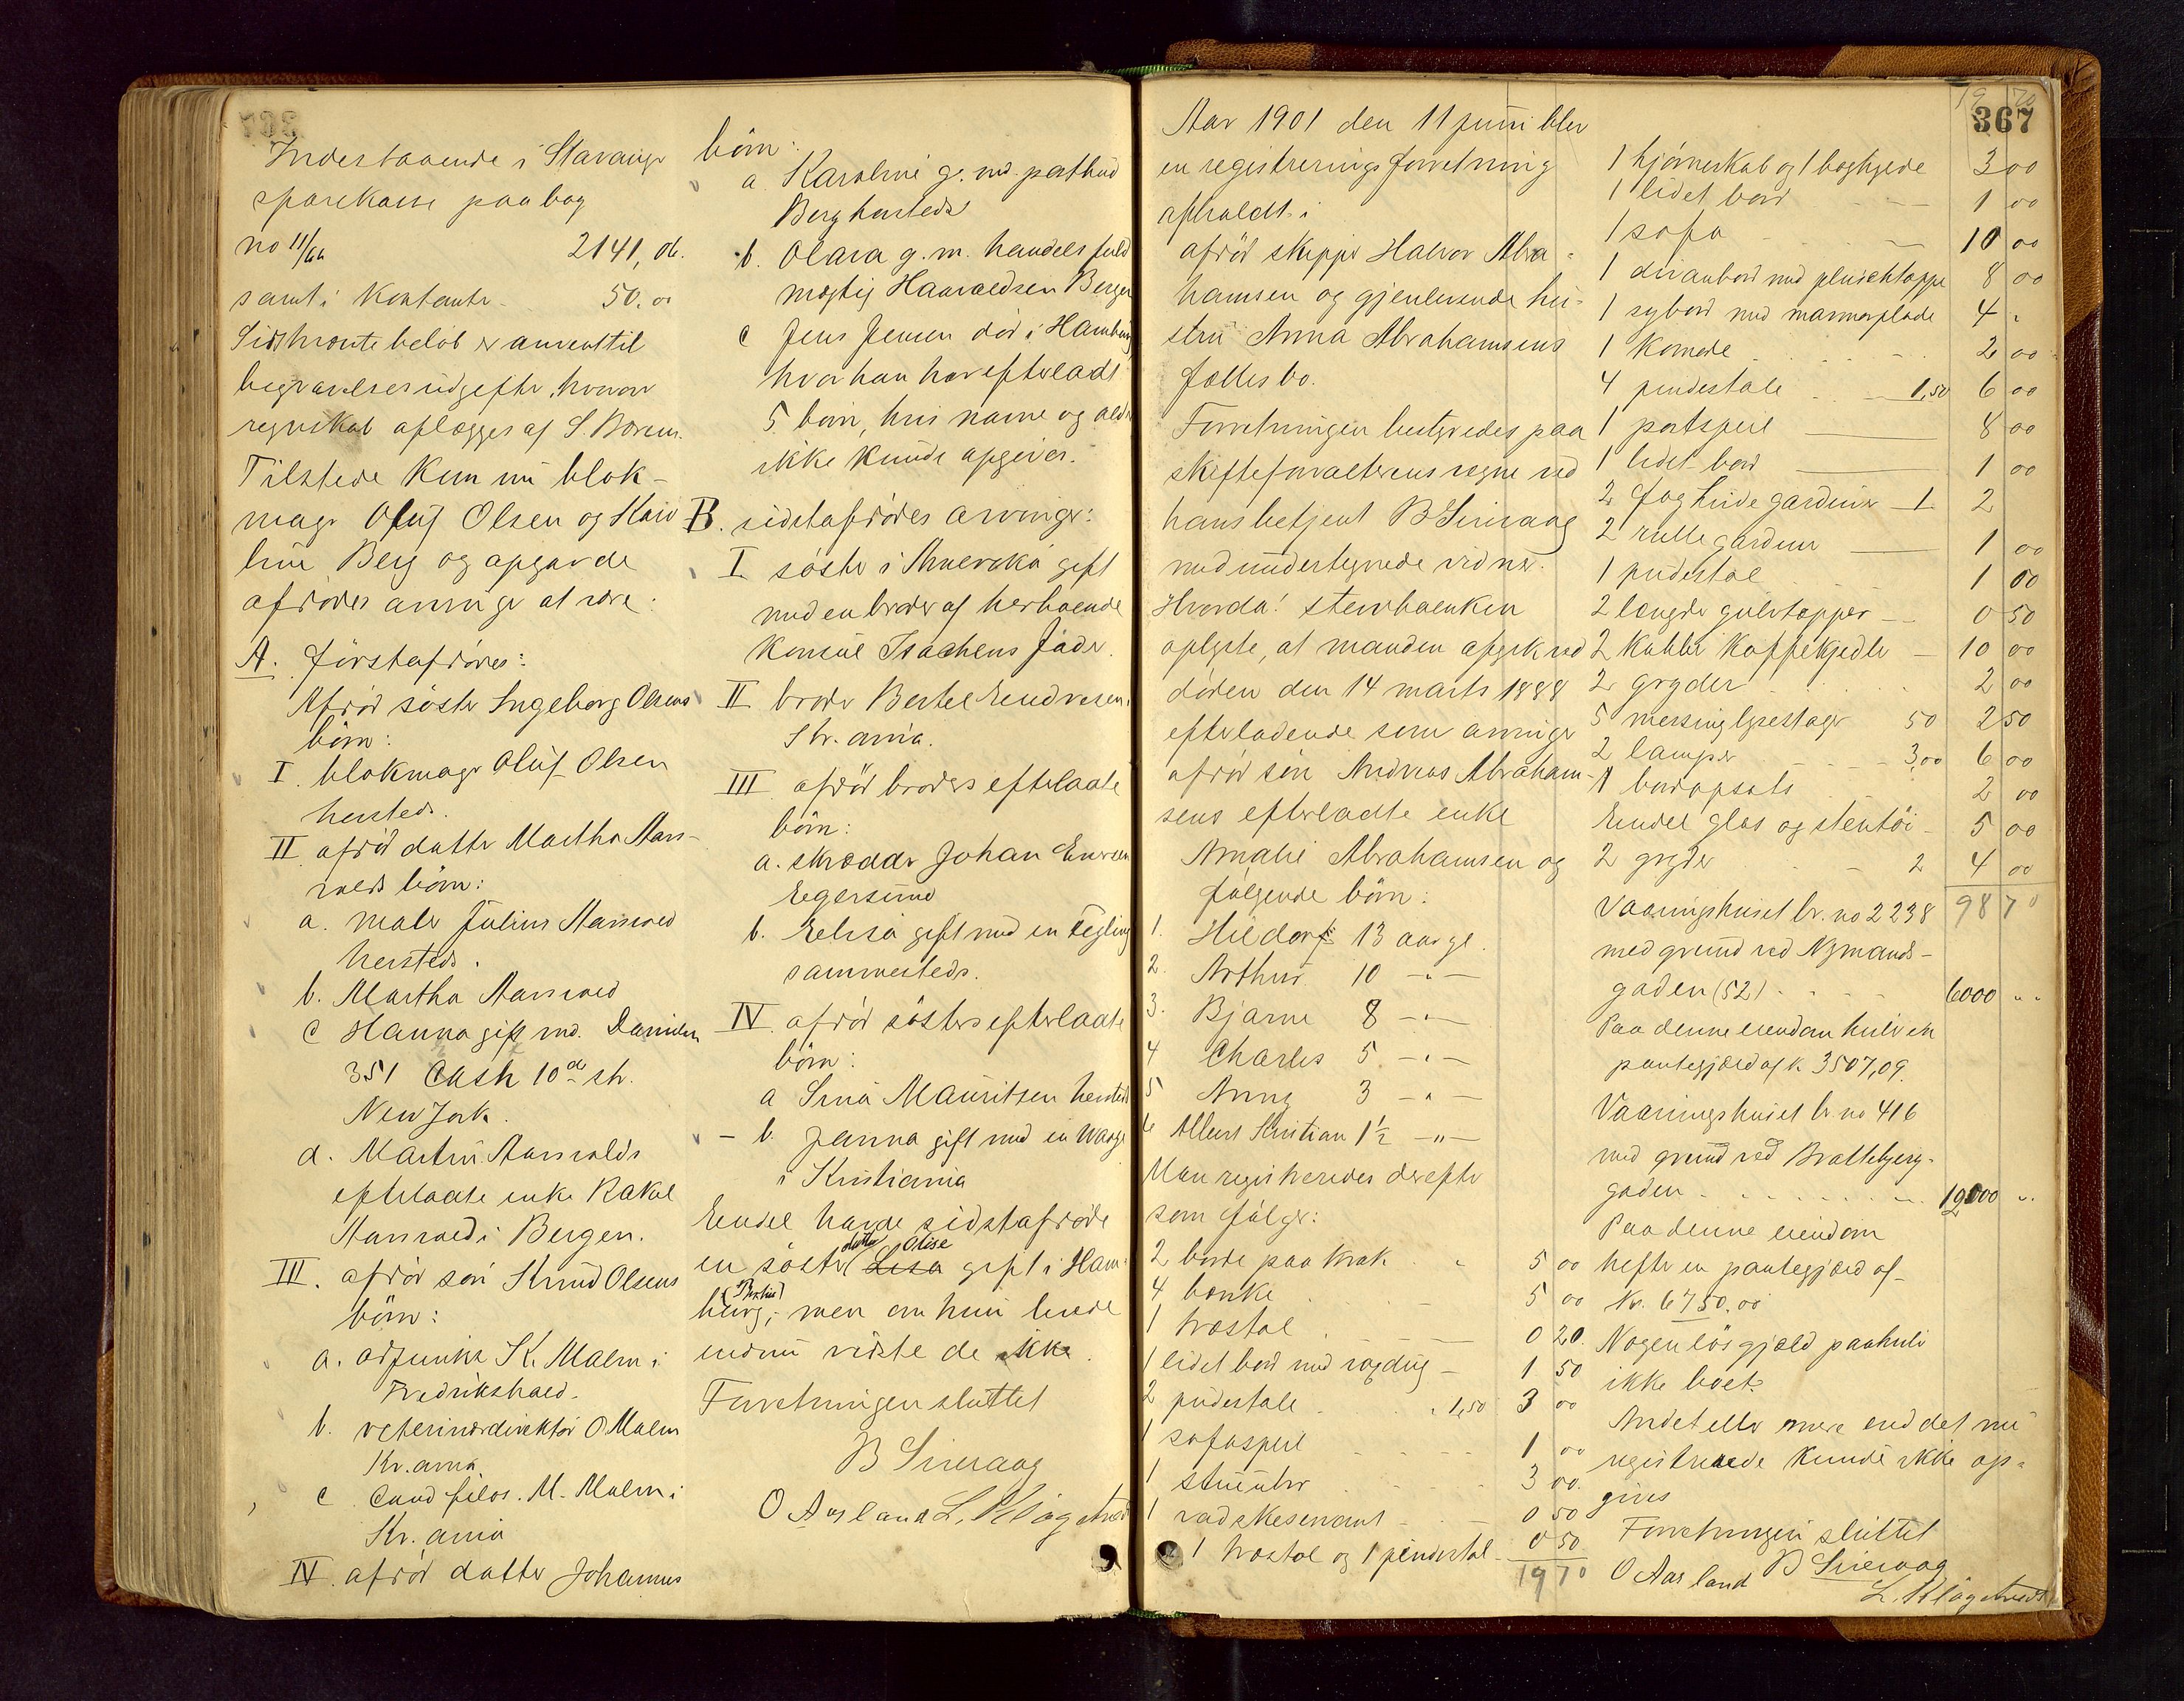 Indestaaende i Stavanger
sparekasse paa bog
no 11/66 2141, 06.
samt i kontanter 50.00
Sidstnævnte beløb er anvendt til
begravelsesudgifter, hvorover
regnskab aflægges af S. Berven.
Tilstede kun nu blok-
mager Oluf Olsen og Karo
line Berg og opgavde
afdødes arvinger at være:
A. førstafdødes:
Afdød søster Ingeborg Olsens
børn:
I. blokmager Oluf Olsen
hersteds.
II afdød datter Martha Aars-
volds børn:
a. maler Julius Aarsvold
hersteds.
b. Martha Aarsvold
c Hanna gift med Danielsen
351 Cash 10de str.
New York.
d. Martin Aarsvolds
efterladte enke Rakel
Aarsvold i Bergen.
III. afdød søn Knud Olsens
børn:
a. adjunkt K. Malm i
Fredrikshald.
b. veterinærdirektør O Malm
Kr.ania
c. Cand filos. M. Malm i
Kr.ania
IV. afdød datter Johannes
børn:
a. Karoline g. md. postbud
Berg hersteds
b. Olava g. m. handelsfuld
mægtig Haavaldsen Bergen
c Jens Jensen død i Hamburg
hvor han har efterladt
5 børn, hvis navne og alder
ikke kunde opgives.
B. sidstafdødes arvinger:
I søster i Amerika gift
med en broder af herboende
konsul Isachsens fader.
II broder Bertel Endresen
Kr.ania.
III afdød broders efterladte
børn:
a. skrædder Johan Endresen
Egersund
b. Elisa gift med en Tegling
sammesteds.
IV. afdød søsters efterladte
børn:
a Lina Mauritsen hersteds
- b. Janna gift med en Waage
i Kristiania
Endel havde sidstafdøde
en søster datter Lisa Olise gift i Ham-
burg; men om hun levede
endnu vidste de ikke.
Forretningen sluttet
B Sirevaag
O Aarsland L. Kløgetvedt
367
Aar 1901 den 11 juni blev
en registreringsforretning
afholdt i
afdød skipper Halvor Abra-
hamsen og gjenlevende hu-
stru Anna Abrahamsens
fællesbo.
Forretningen bestyredes paa
skifteforvalterens vegne ved
hans betjent B Sirevaag
med undertegnede vidner.
Hvorda! stervboenken
oplyste, at manden afgik ved
døden den 14 marts 1888
efterladende som arvinger
afdød søn Andreas Abraham-
sens efterladte enke
Amalie Abrahamsen og
følgende børn:
1. Hildorf 13 aar gl.
2. Arthur 10 -"-
3. Bjarne 8 -"-
4 Charles 5 -"-
5 Anny 3 -"-
6 Albert Kristian 1½ -"-
Man registreredes derefter
som følger:
2 borde paa krak 5 00
4 bænke 5 00
1 træstol 0 20
1 lidet bord med voxdug 1 50
2 pudestole 1,50 3 00
1 sofaspeil 1 00
1 stueuhr 3 00
1 vadskeservant 0 50
1 træstol og 1 pindestol 0 50
19 70
19 70
1 hjørneskab og 1 boghylde 3 00
1 lidet bord 1 00
1 sofa 10 00
1 divanbord med plüschtæppe 8 00
1 sybord med marmorplade 4 "
1 komode 2 00
4 pudestole 1,50 6 00
1 portspeil 8 00
1 lidet bord 1 00
2 fag hvide gardiner 1 2
2 rullegardiner 1 00
1 pudestol 1 00
2 længder gulvtæpper 0 50
2 kobber kaffekjedler 10 00
2 gryder 2 00
5 messing lysestager 50 2 50
2 lamper 3,00 6 00
1 bordopsats 2 00
Endel glas og stentøi 5 00
2 gryder 2 4 00
98 70
Vaaningshuset br. no 2238
med grund ved Nymands-
gaden (52) 6000 "
Paa denne eiendom hviler en
pantegjæld af k. 3507,09.
Vaaningshuset br. no 416
med grund ved Brattebjerg-
gaden 12000 "
Paa denne eiendom
hefter en pantegjæld af
Kr. 6750,00
Nogen løs gjæld paahvili
ikke boet.
Andet eller mere end det nu
registrerede kunde ikke op-
gives
Forretningen sluttet
O Aarsland B Sirevaag
L. Kløgetvedt